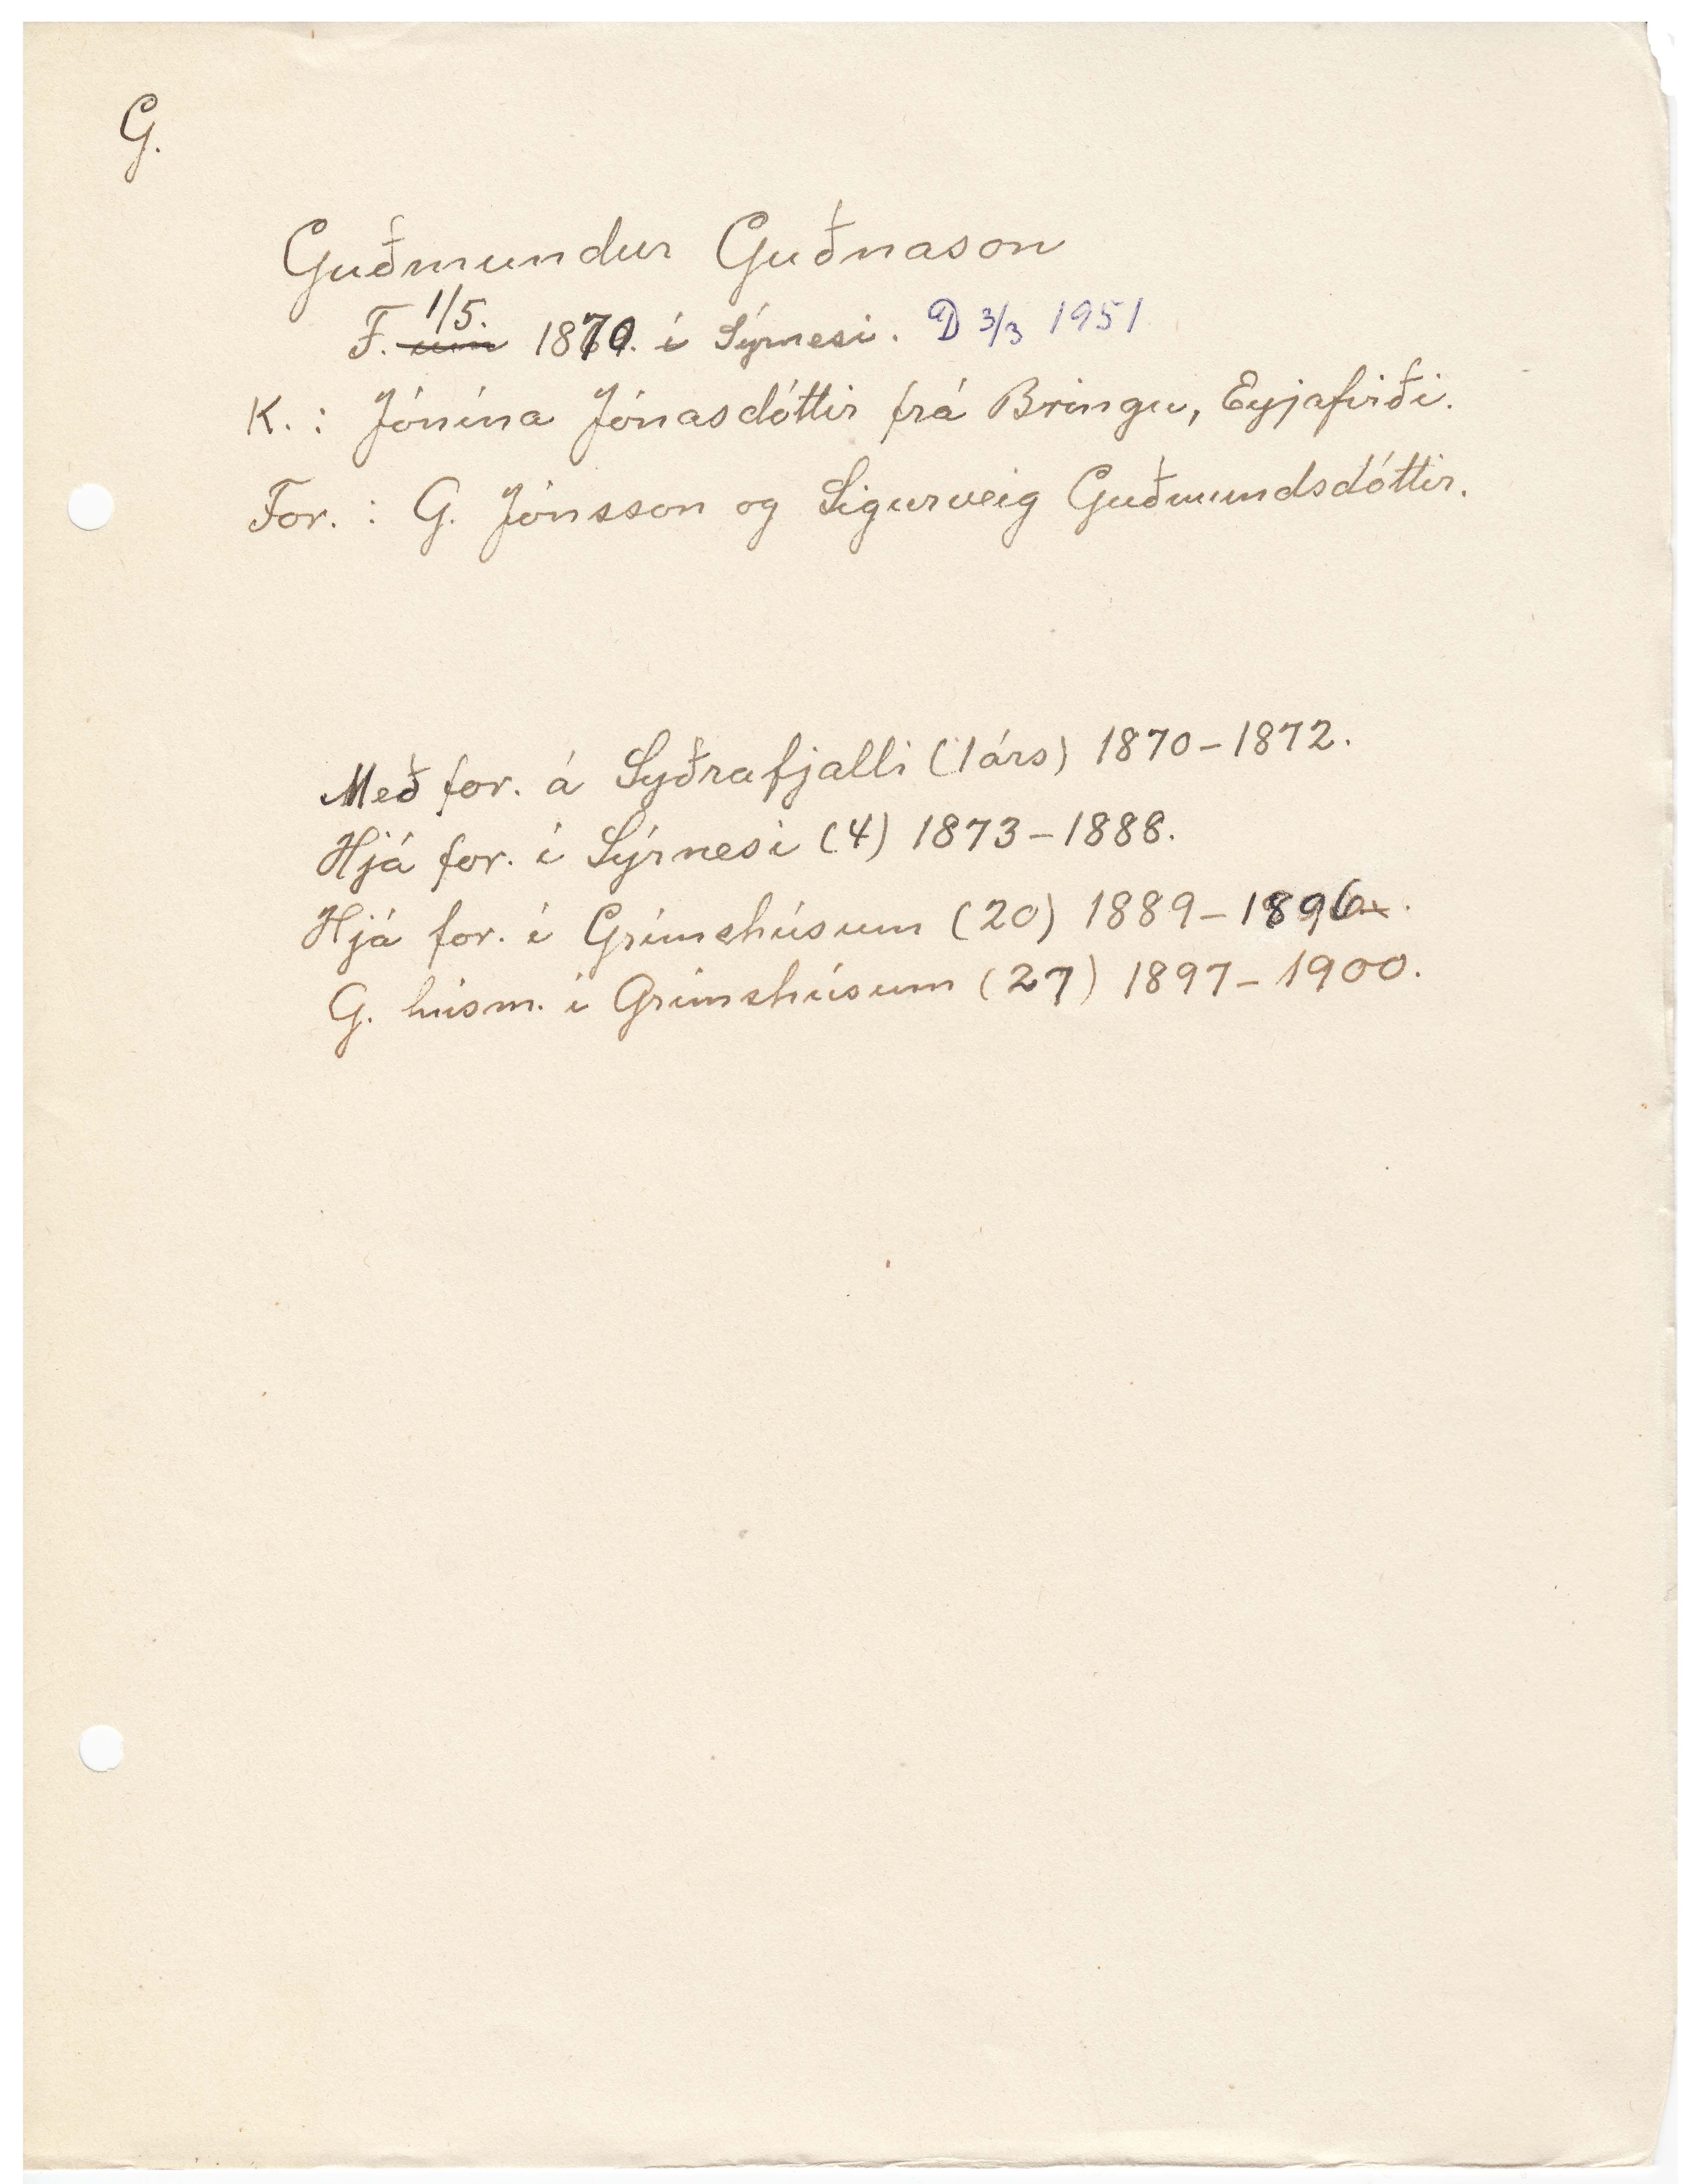 G.
Guðmundur Guðnason
F. 1/5. 1870. í Sýrnesi. D 3/3 1951
K. : Jónína Jónasdóttir frá Bringu, Eyjafirði.
For. : G. Jónsson og Sigurveig Guðmundsdóttir.
Með for. á Syðrafjalli (1árs) 1870-1872.
Hjá for. í Sýrnesi (4) 1873-1888.
Hjá for. í Grímshúsum (20) 1889-1896.
G. húsm. í Grímshúsum (27) 1897-1900.